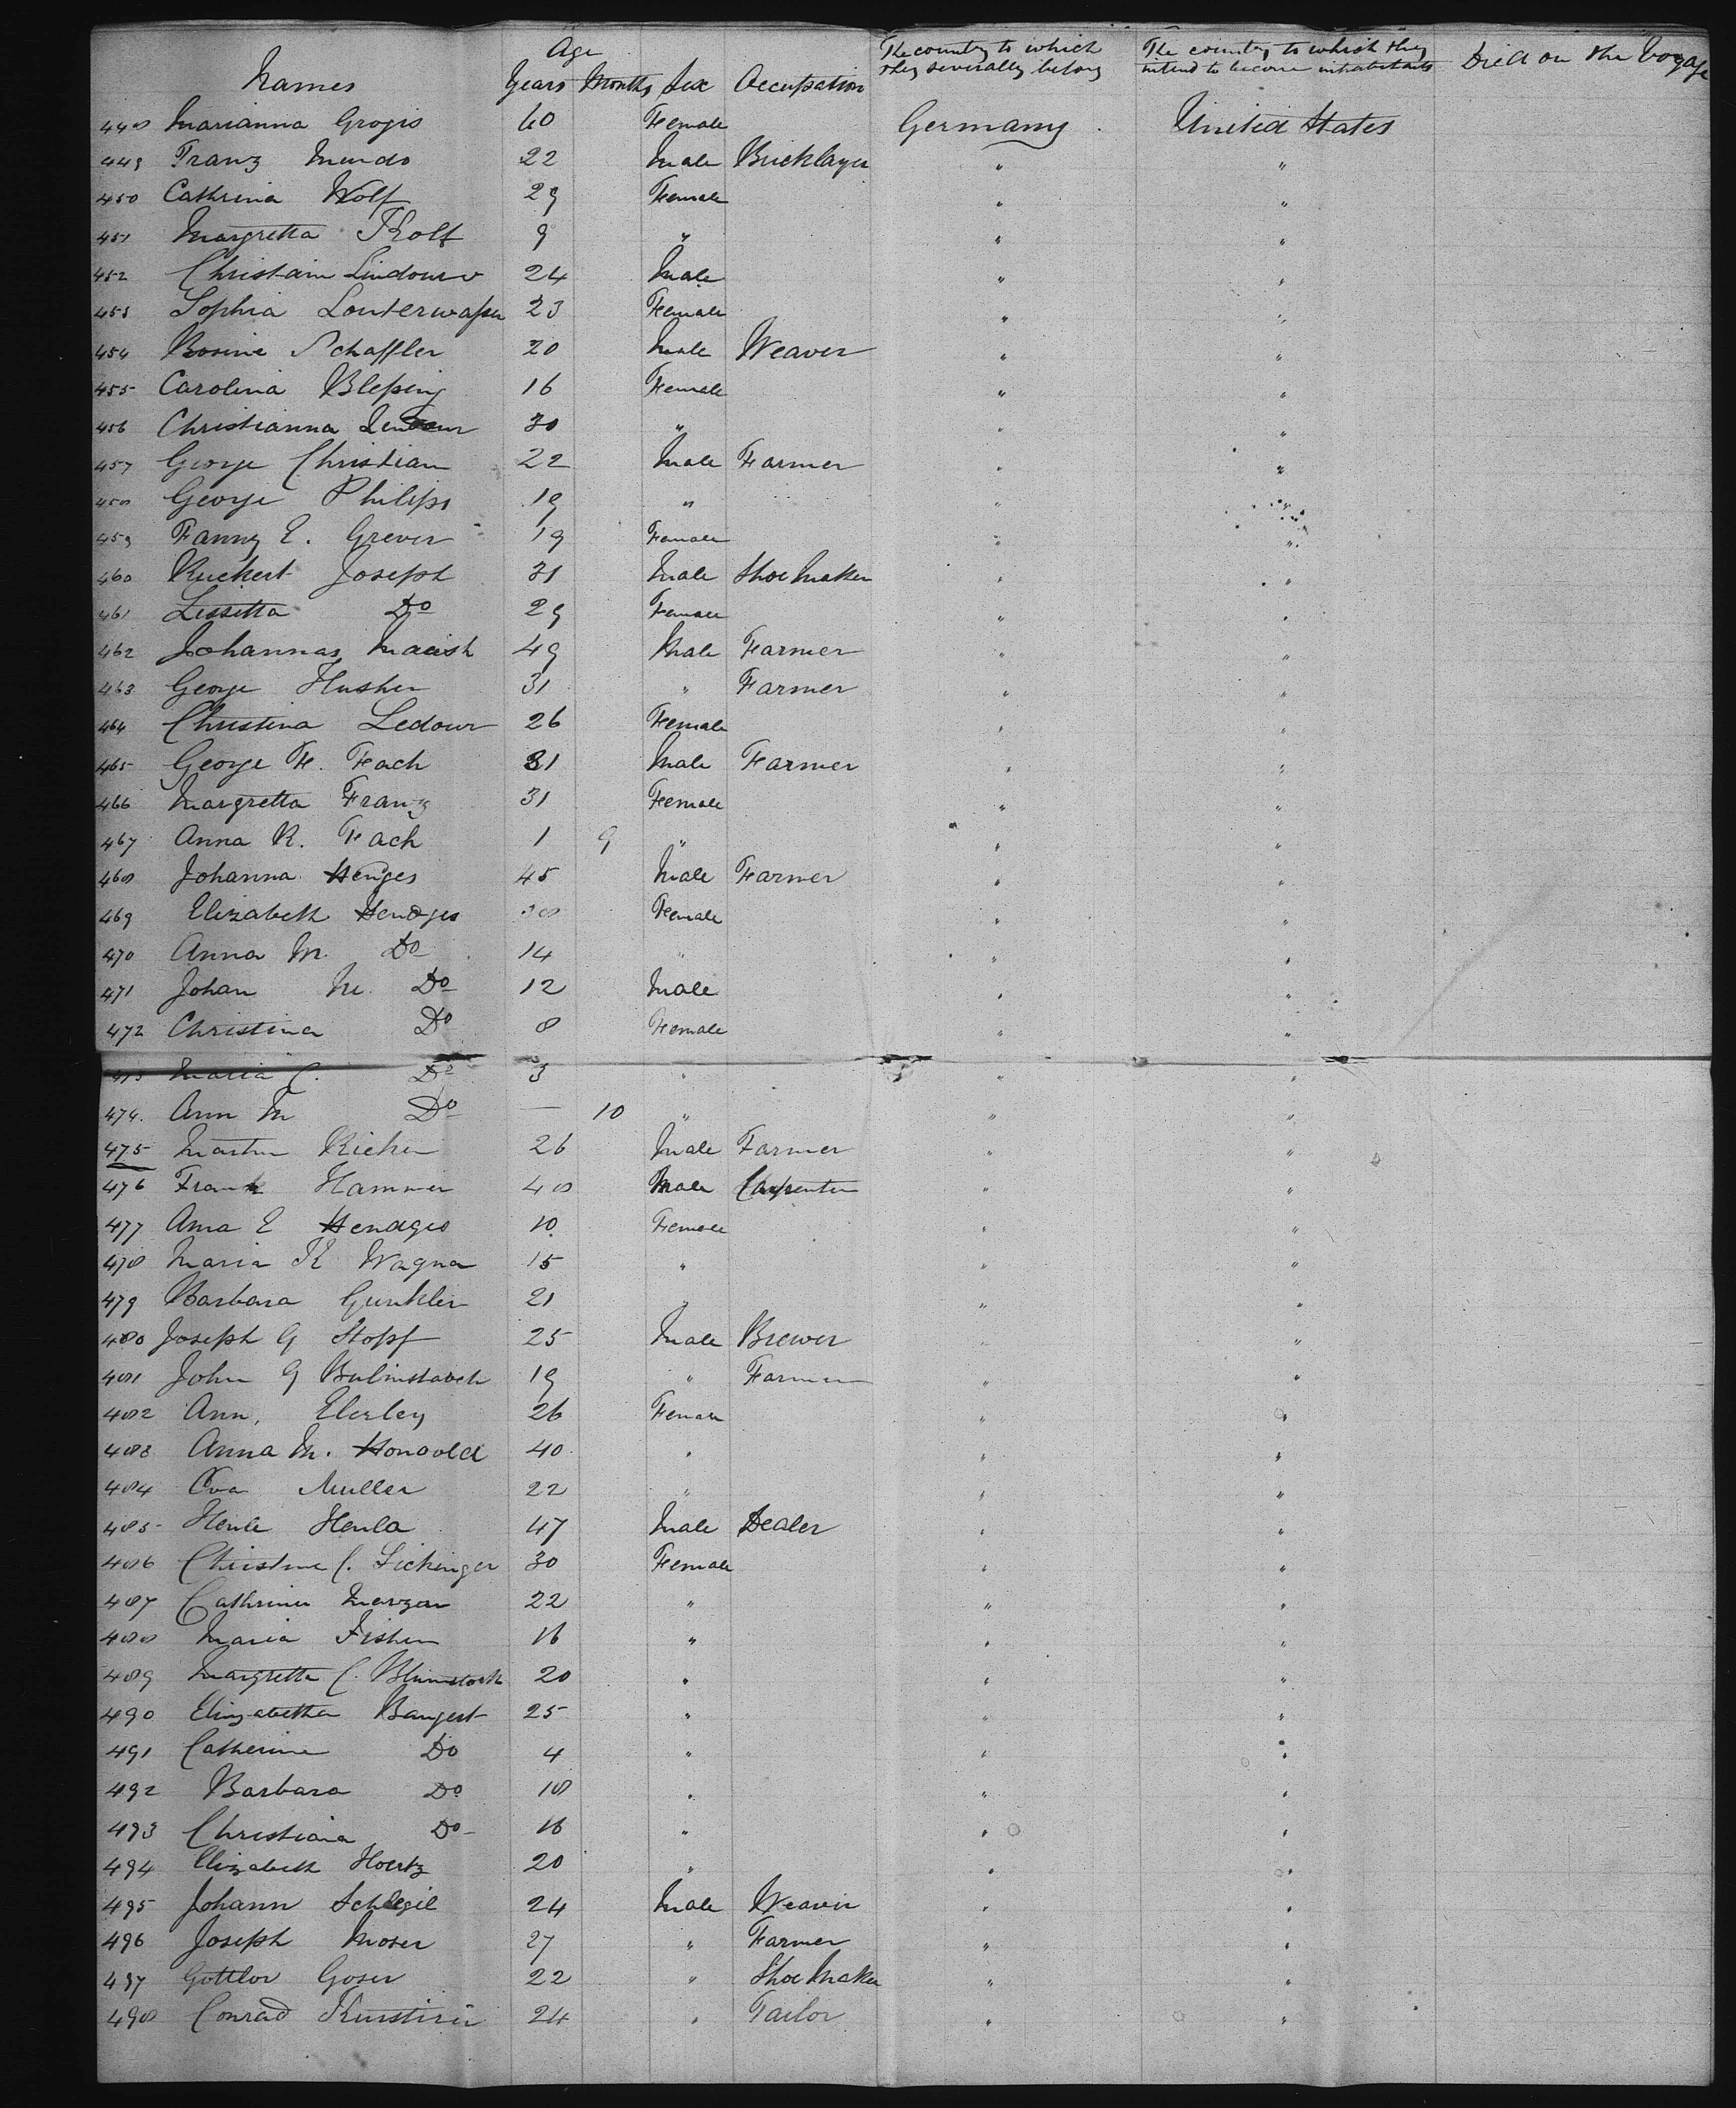 Names Age Years Months Sex Occupation The country to which they severally belong The country to which they intend to become inhabitants Died on the Voyage
448 Marianna Grogis 60 Female Germany United States
449 Franz Mundo 22 Male Bricklayer " "
450 Cathrina Wolf 29 Female " "
451 Margretta Rolf 9 " " "
452 Christain Lindour 24 Male " "
453 Sophia Louterwasser 23 Female " "
454 Rosine Schaffler 20 Male Weaver " "
455 Carolina Blessing 16 Female " "
456 Christianna 30 " " "
457 George Christian 22 Male Farmer " "
458 George Philips 19 " " "
459 Fanny E. Grever 19 Female " "
460 Ruckert Joseph 31 Male Shoe Maker " "
461 Lissetta Do 29 Female " "
462 Johannas Maish 49 Male Farmer " "
463 George Husher 31 " Farmer " "
464 Christina Ledour 26 Female " "
465 George F. Fach 31 Male Farmer " "
466 Margretta Franz 31 Female " "
467 Anna R. Fach 1 9 " " "
468 Johanna Henges 45 Male Farmer " "
469 Elizabeth Hendges 38 Female " "
470 Anna M. Do 14 " " "
471 Johan M. Do 12 Male " "
472 Christina Do 8 Female " "
473 Maria C. Do 3 " " "
474. Ann M Do — 10 " " "
475 Martin Richer 26 Male Farmer " "
476 Frank Hammer 48 Male Carpenter " "
477 Anna E Hendges 10 Female " "
478 Maria K Wagna 15 " " "
479 Barbara Gunkler 21 " " "
480 Joseph G Stopf 25 Male Brewer " "
481 John G 19 " Farmer " "
482 Ann, Elerley 26 Female " "
483 Anna M. Honoold 40 " " "
484 Eva Muller 22 " " "
485 Henle Henla 47 Male Dealer " "
486 Christine C. Sickinger 30 Female " "
487 Cathrina Merzar 22 " " "
488 Maria Fisher 16 " " "
489 Margretta C. Blumstock 20 " " "
490 Elizabetha Bangert 25 " " "
491 Catherine Do 4 " " "
492 Barbara Do 18 " " "
493 Christiana Do 16 " " "
494 Elizabeth Hoertz 20 " " "
495 Johann Schlegil 24 Male Weaver " "
496 Joseph Moser 27 " Farmer " "
497 Gottlov Goser 22 " Shoe Maker " "
498 Conrad 24 " Tailor " "